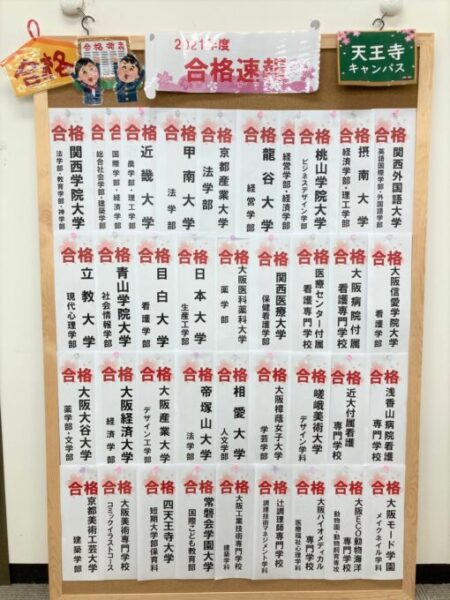 合格
合格発表
2021年度
合格速報
天王寺
キャンパス
合格
関西外国語大学
英語国際学部・外国語学部
合格
摂南大学
経済学部・理工学部
合格
桃山学院大学
ビジネスデザイン学部
経営学部・経済学部
合格
龍谷大学
経営学部
合格
京都産業大学
法学部
合格
甲南大学
法学部
合格
近畿大学
農学部・理工学部
国際学部・経済学部
総合社会学部・建築学部
合格
関西学院大学
法学部・教育学部・神学部
合格
大阪信愛学院大学
看護学部
合格
大阪病院付属
看護専門学校
合格
医療センター付属
看護専門学校
合格
関西医療大学
保健看護学部
合格
大阪医科薬科大学
薬学部
合格
日本大学
生産工学部
合格
目白大学
看護学部
合格
青山学院大学
社会情報学部
合格
立教大学
現代心理学部
合格
浅香山病院看護
専門学校
合格
近大付属看護
専門学校
合格
嵯峨美術大学
デザイン学科
合格
大阪樟蔭女子大学
学芸学部
合格
相愛大学
人文学部
合格
帝塚山大学
法学部
合格
大阪産業大学
デザイン工学部
合格
大阪経済大学
経済学部
合格
大阪大谷大学
薬学部・文学部
合格
大阪モード学園
メイクネイル学科
合格
大阪ECO動物海洋
専門学校
動物園・動物飼育専攻
合格
大阪バイオメディカル
専門学校
医療福祉心理学科
合格
辻調理師専門学校
調理技術マネジメント学科
合格
大阪工業技術専門学校
建築学科
合格
常磐会学園大学
国際こども教育学部
合格
四天王寺大学
短期大学部保育科
合格
大阪美術専門学校
コミックイラストコース
合格
京都美術工芸大学
建築学部